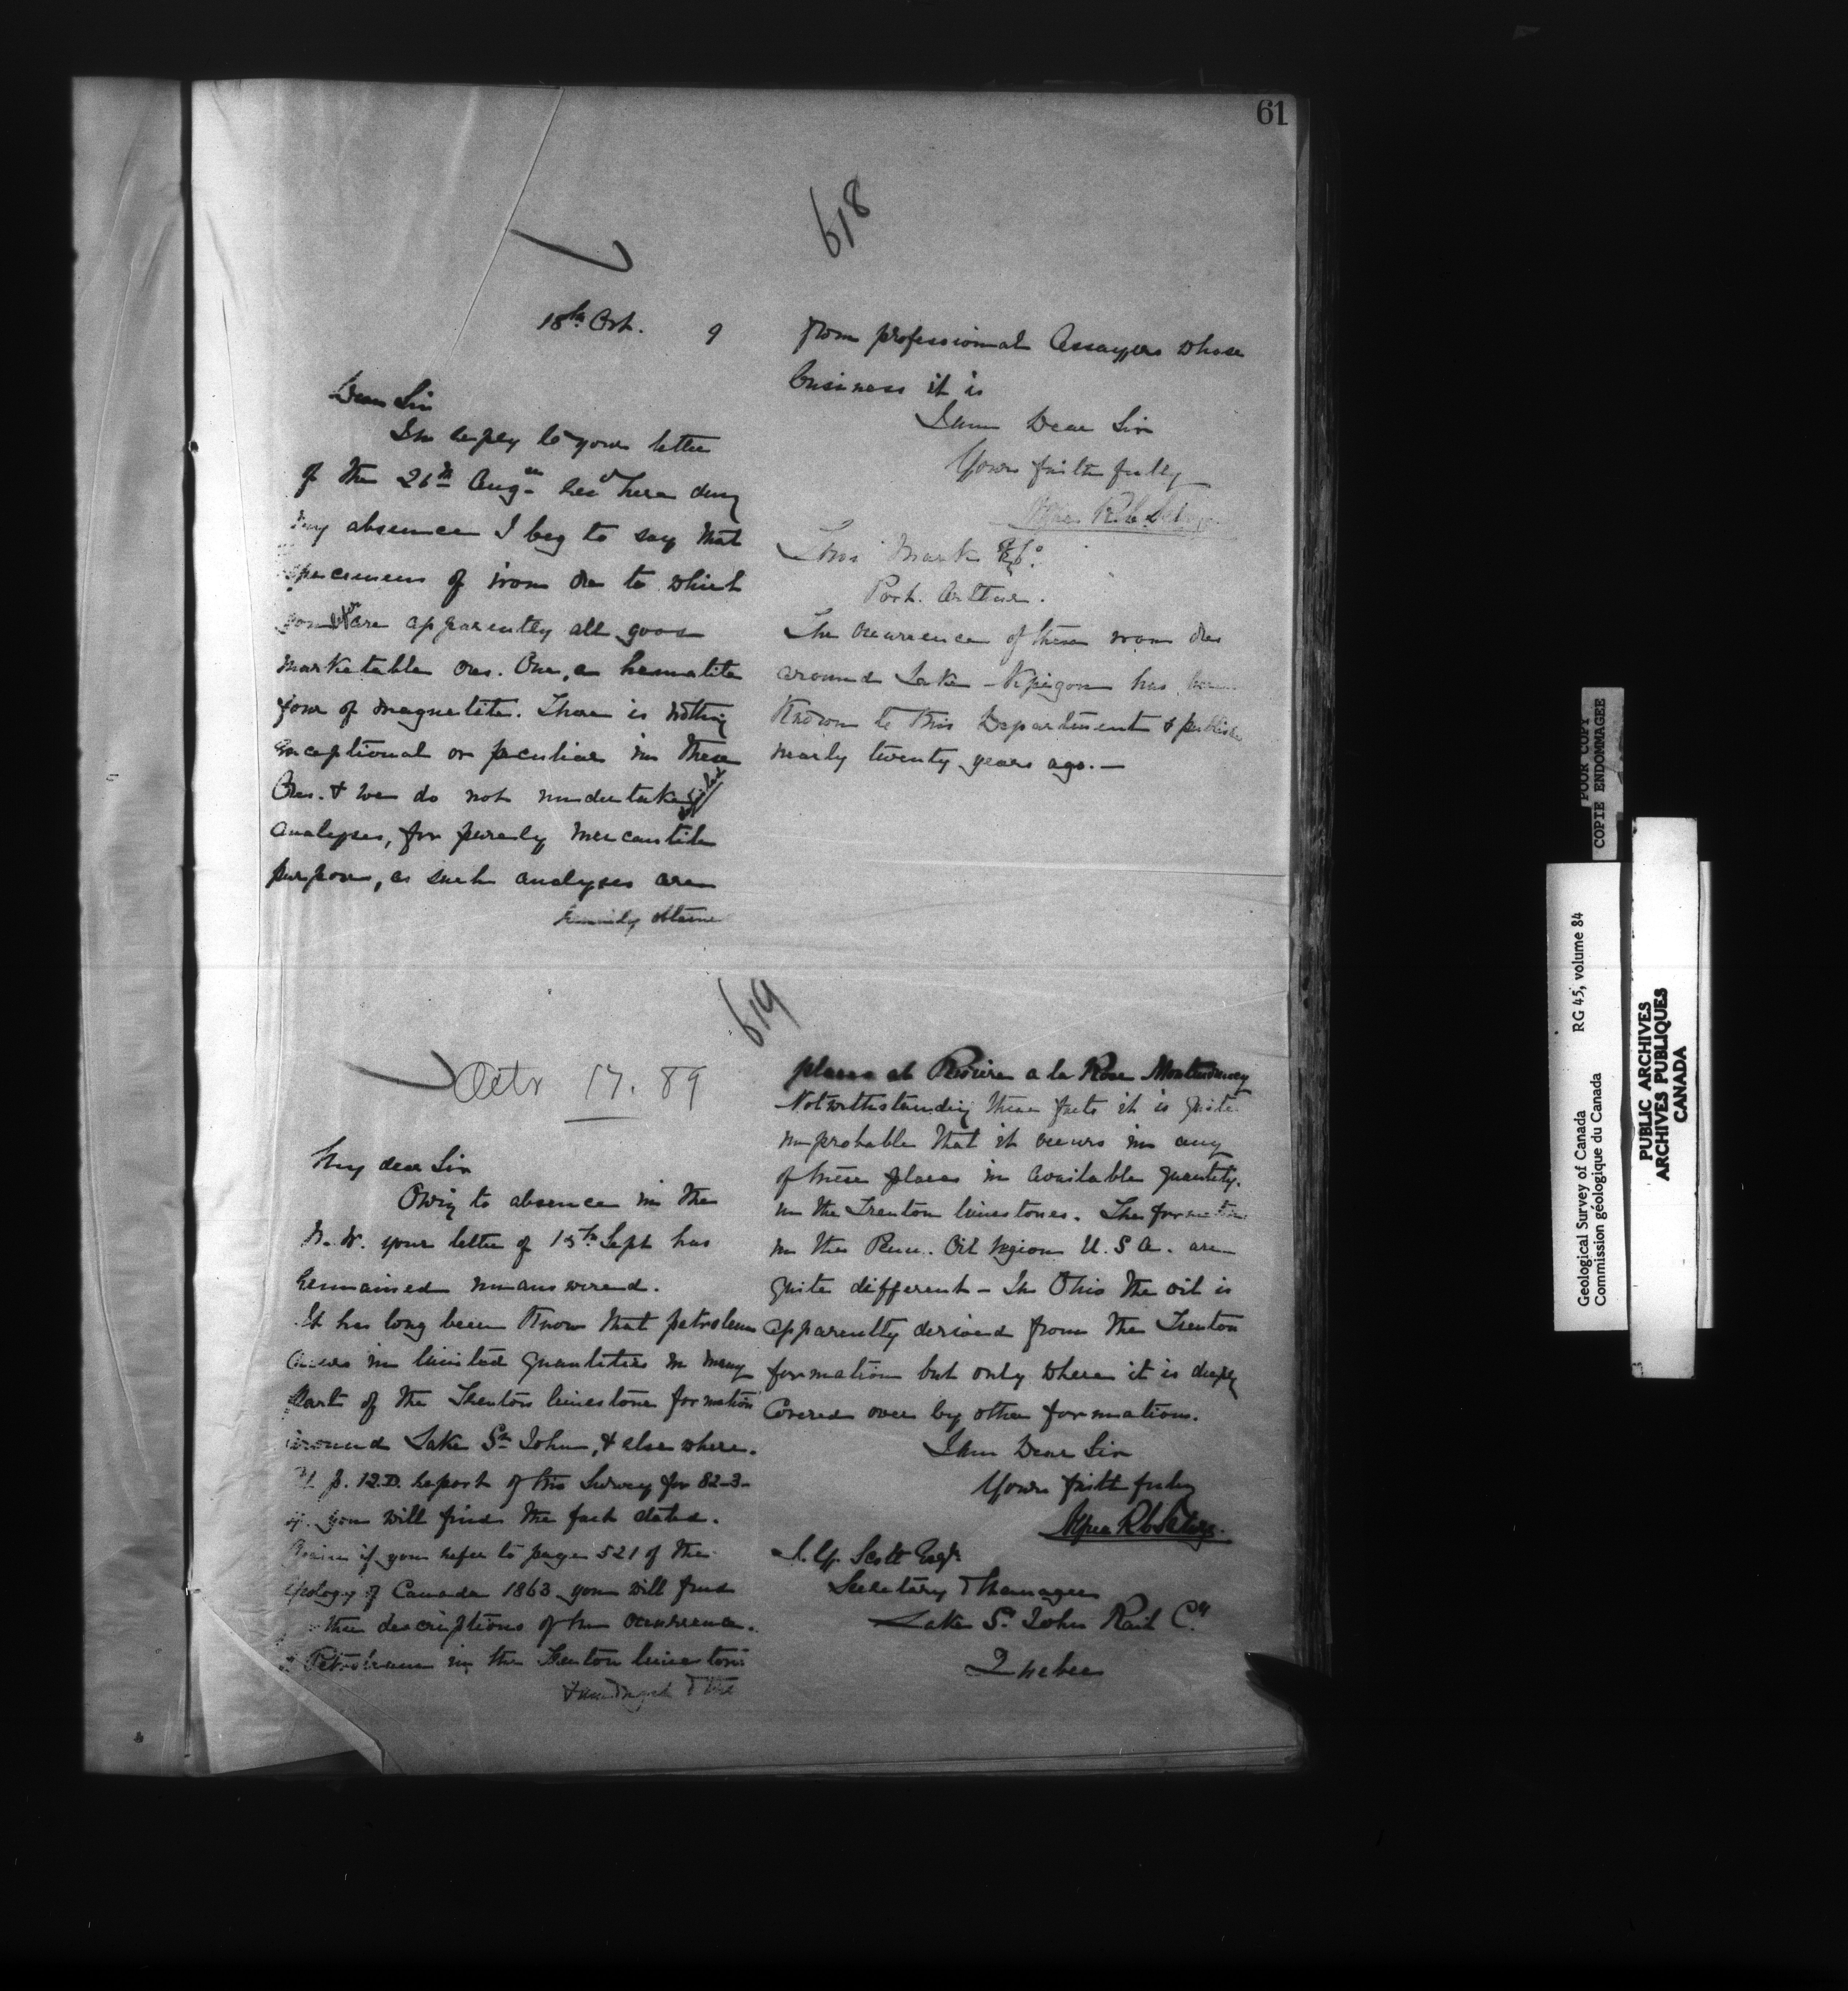 61
618
18th Oct. 9
Dear Sir
In reply to your letter
of the 26th Aug. rec'd here durg
my absence I beg to say that
specimens of iron ore to which
you refer are apparently all good
marketable ores. One, a hematite
four of magnetite. There is nothing
exceptional or peculiar in these
Ores. & we do not undertake
analyses, for purely mercantile
purposes, as such analyses are
obtaine
from professional Assayers whose
business it is
I am Dear Sir
Yours faithfully
Alfred R.C. Selwyn
Thos Marks & Co.
Port. Arthur.
The occurrence of these iron ores
around Lake Nipigon has been
known to this Department & publishe
nearly twenty years ago.—
619
Octr 17. 89
My dear Sir
Owing to absence in the
N. W. your letter of 15th Sept has
remained unanswered.
It has long been know that petroleum
occurs in limited quantities in many
parts of the Trenton limestone formation
around Lake St John, & elsewhere.
At p. 12.D. report of this Survey for 82-3-
4. you will find the fact stated.
Again if you refer to page 521 of the
Geology of Canada 1863 you will find
descriptions of the occurrence.
of Petroleum in the Trenton limestone
& the
places at Riviere a la Rose Montmorency
Notwithstanding these facts it is quite
improbable that it occurs in any
of these places in available quantity.
in the Trenton limestones. The formation
in the Penn. Oil region U. S A. are
quite different - In Ohio the oil is
apparently derived from the Trenton
formation but only where it is deeply
covered over by other formations.
I am Dear Sir
Yours faithfully
Alfred R C Selwyn.
J. G. Scott Esqr
Secretary & Manager
Lake St John Rail Cy
Quebec
POOR COPY
COPIE ENDOMMAGEE
Geological Survey of Canada RG 45, volume 84
Commission géologique du Canada
PUBLIC ARCHIVES
ARCHIVES PUBLIQUES
CANADA